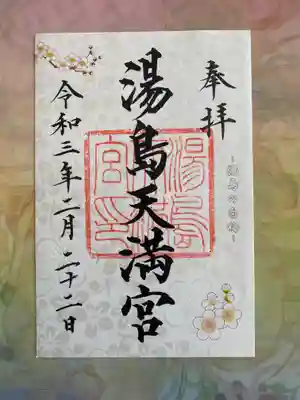 奉拝
～湯島の白梅～
湯島天満宮
令和三年二月二十二日